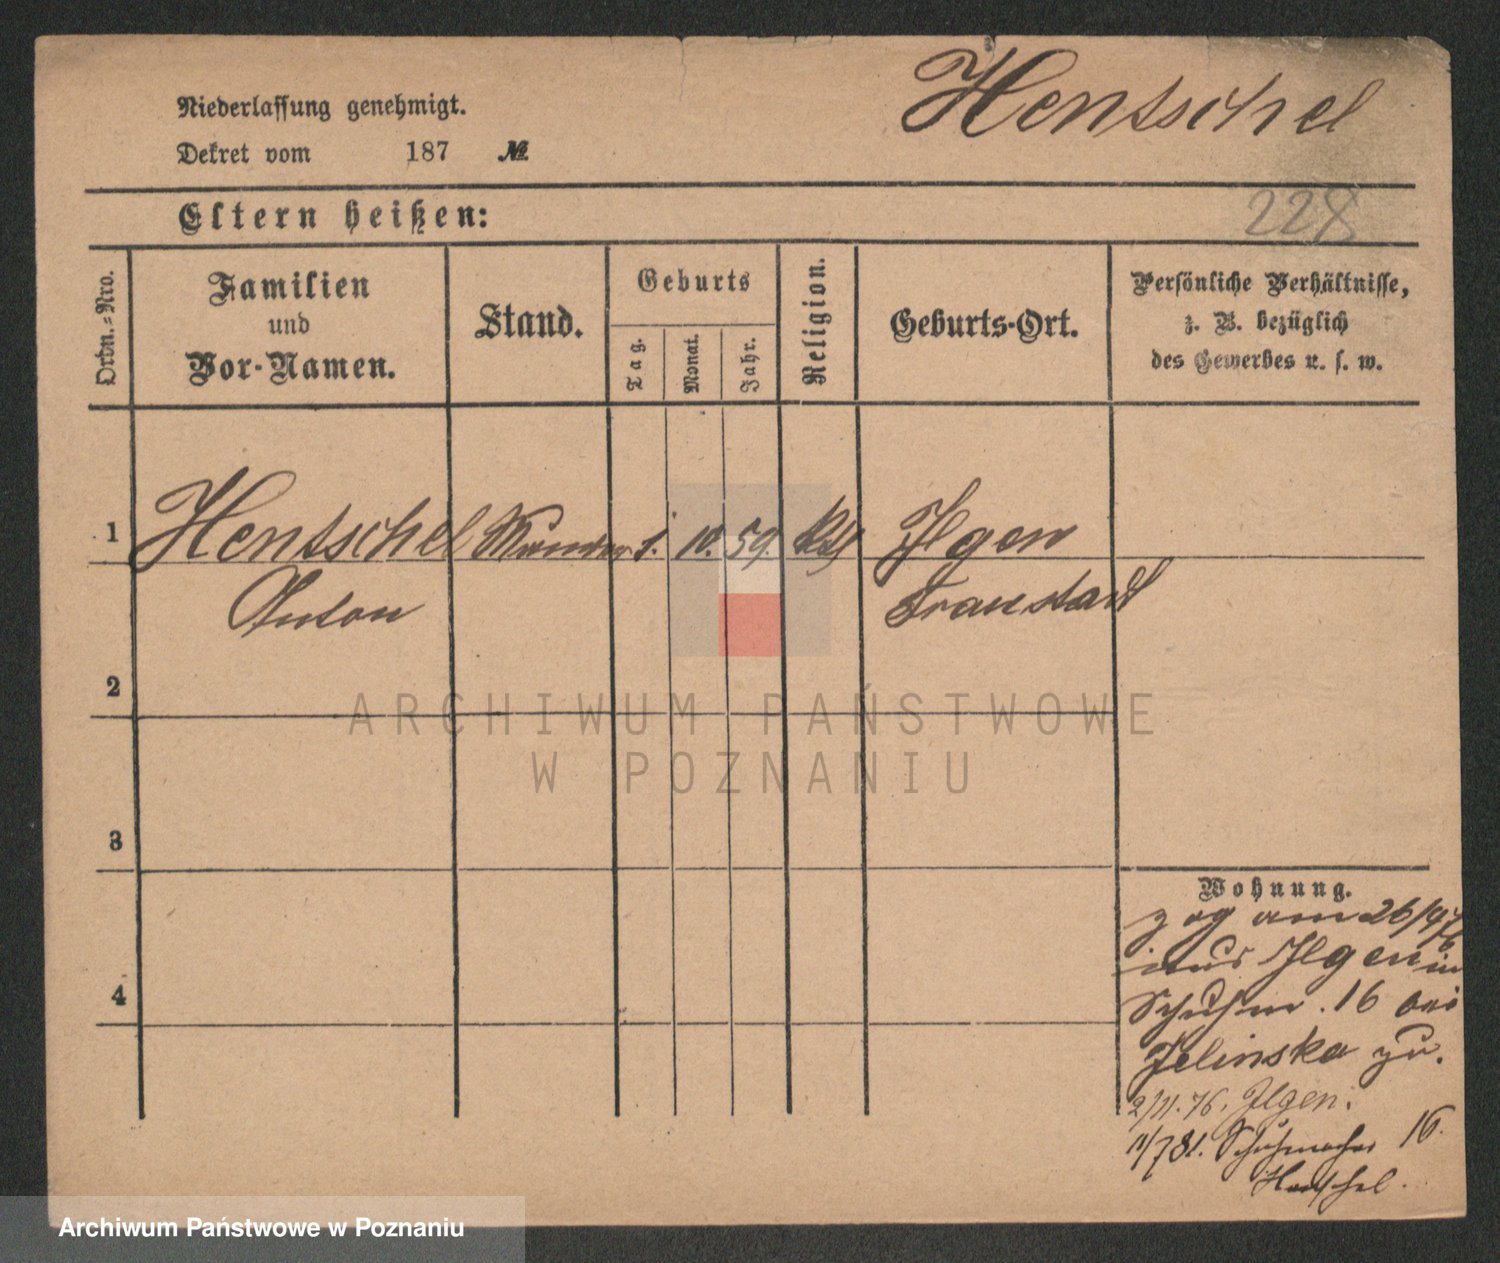 Hentschel
Niederlassung genehmigt.
Dekret vom 187 №
228
Eltern heißen:
Ordn.=Nro.
Familien
und
Vor-Namen.
Stand.
Geburts
Tag.
Monat.
Jahr.
Religion.
Geburts-Ort.
Persönliche Verhältnisse,
z. B. bezüglich
des Gewerbes u. s. w.
1 Hentschel 1. 10. 59. Kath Ilgen
Anton Fraustadt
2
ARCHIWUM PAŃSTWOWE
W POZNANIU
3
Wohnung.
zog am 26/9 76
aus Ilgen in
Schuhm. 16 bei
Jelinska zu.
2/11. 76. Ilgen.
11/7 81. Schuhmacher 16.
Hentschel.
4
Archiwum Państwowe w Poznaniu